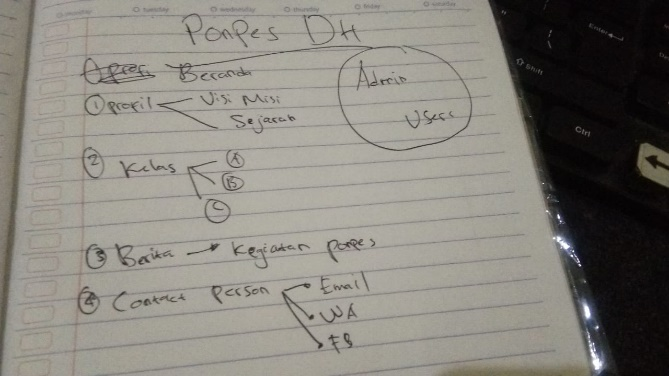 monday tuesday wednesday thursday friday saturday
Ponpes DH
Beranda
① profil Visi Misi
Sejarah
Admin
Users
② Kelas Ⓐ
Ⓑ
Ⓒ
③ Berita → Kegiatan ponpes
④ Contact Person → Email
WA
FB
Enter
Shift
Ctrl